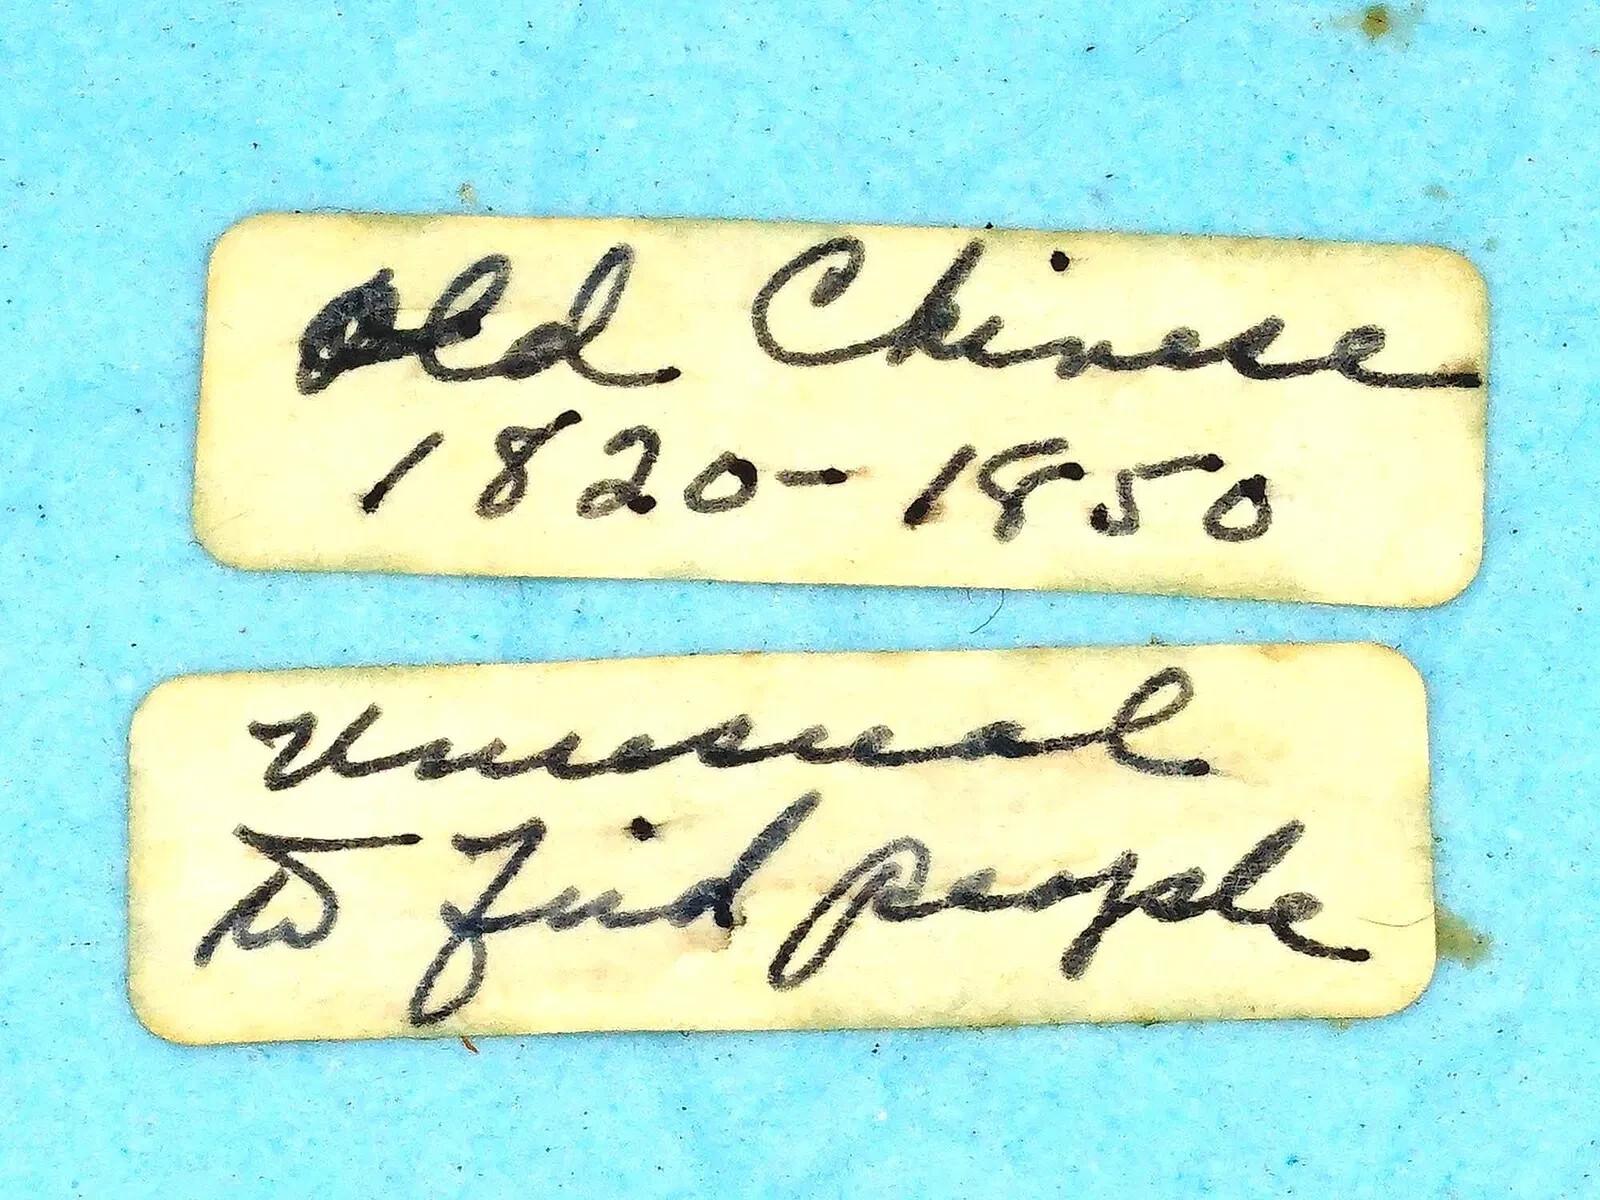 Old Chinese
1820-1850
Unusual
to find people